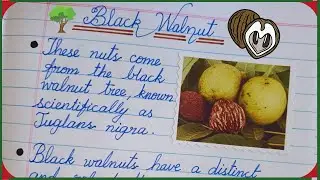 Black Walnut
These nuts come
from the black
walnut tree, known
scientifically as
Juglans nigra.
Black walnuts have a distinct